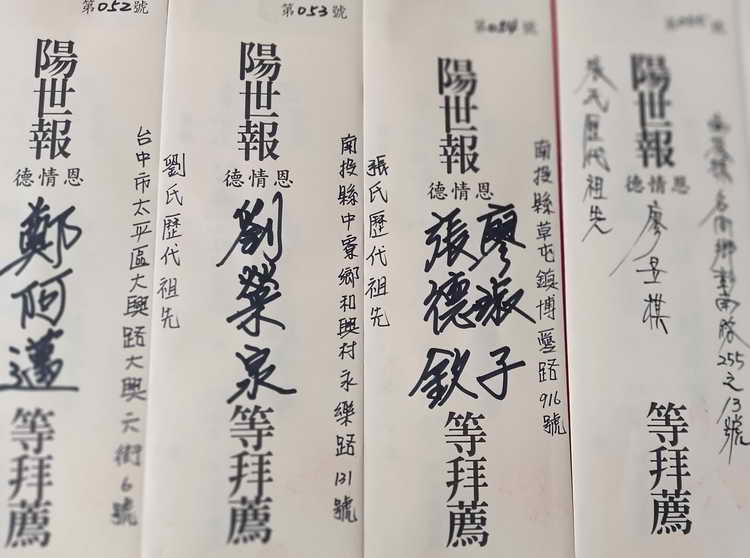 第052號
台中市太平區大興路大興六街6號
陽世報
德情恩
鄭阿邁
等拜薦
第053號
南投縣中寮鄉和興村永樂路131號
陽世報
德情恩
劉榮泉
等拜薦
劉氏歷代祖先
第054號
南投縣草屯鎮博愛路916號
陽世報
德情恩
廖淑子
張德欽
等拜薦
張氏歷代祖先
255
13號
陽世報
德情恩
廖昱棋
等拜薦
張氏歷代祖先